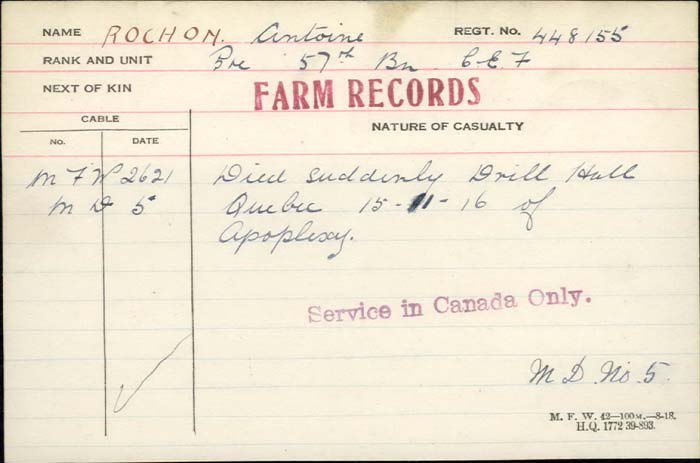 NAME ROCHON. Antoine REGT. No. 448155
RANK AND UNIT Pte 57th Bn C.E.F
NEXT OF KIN FARM RECORDS
CABLE
NATURE OF CASUALTY
No. DATE
M F W 2621 Died suddenly Drill Hall
M D 5 Quebec 15-11-16 of
Apoplexy.
Service in Canada Only.
M.D. No. 5.
M. F. W. 42—100M.—8-18.
H.Q. 1772 39-893.